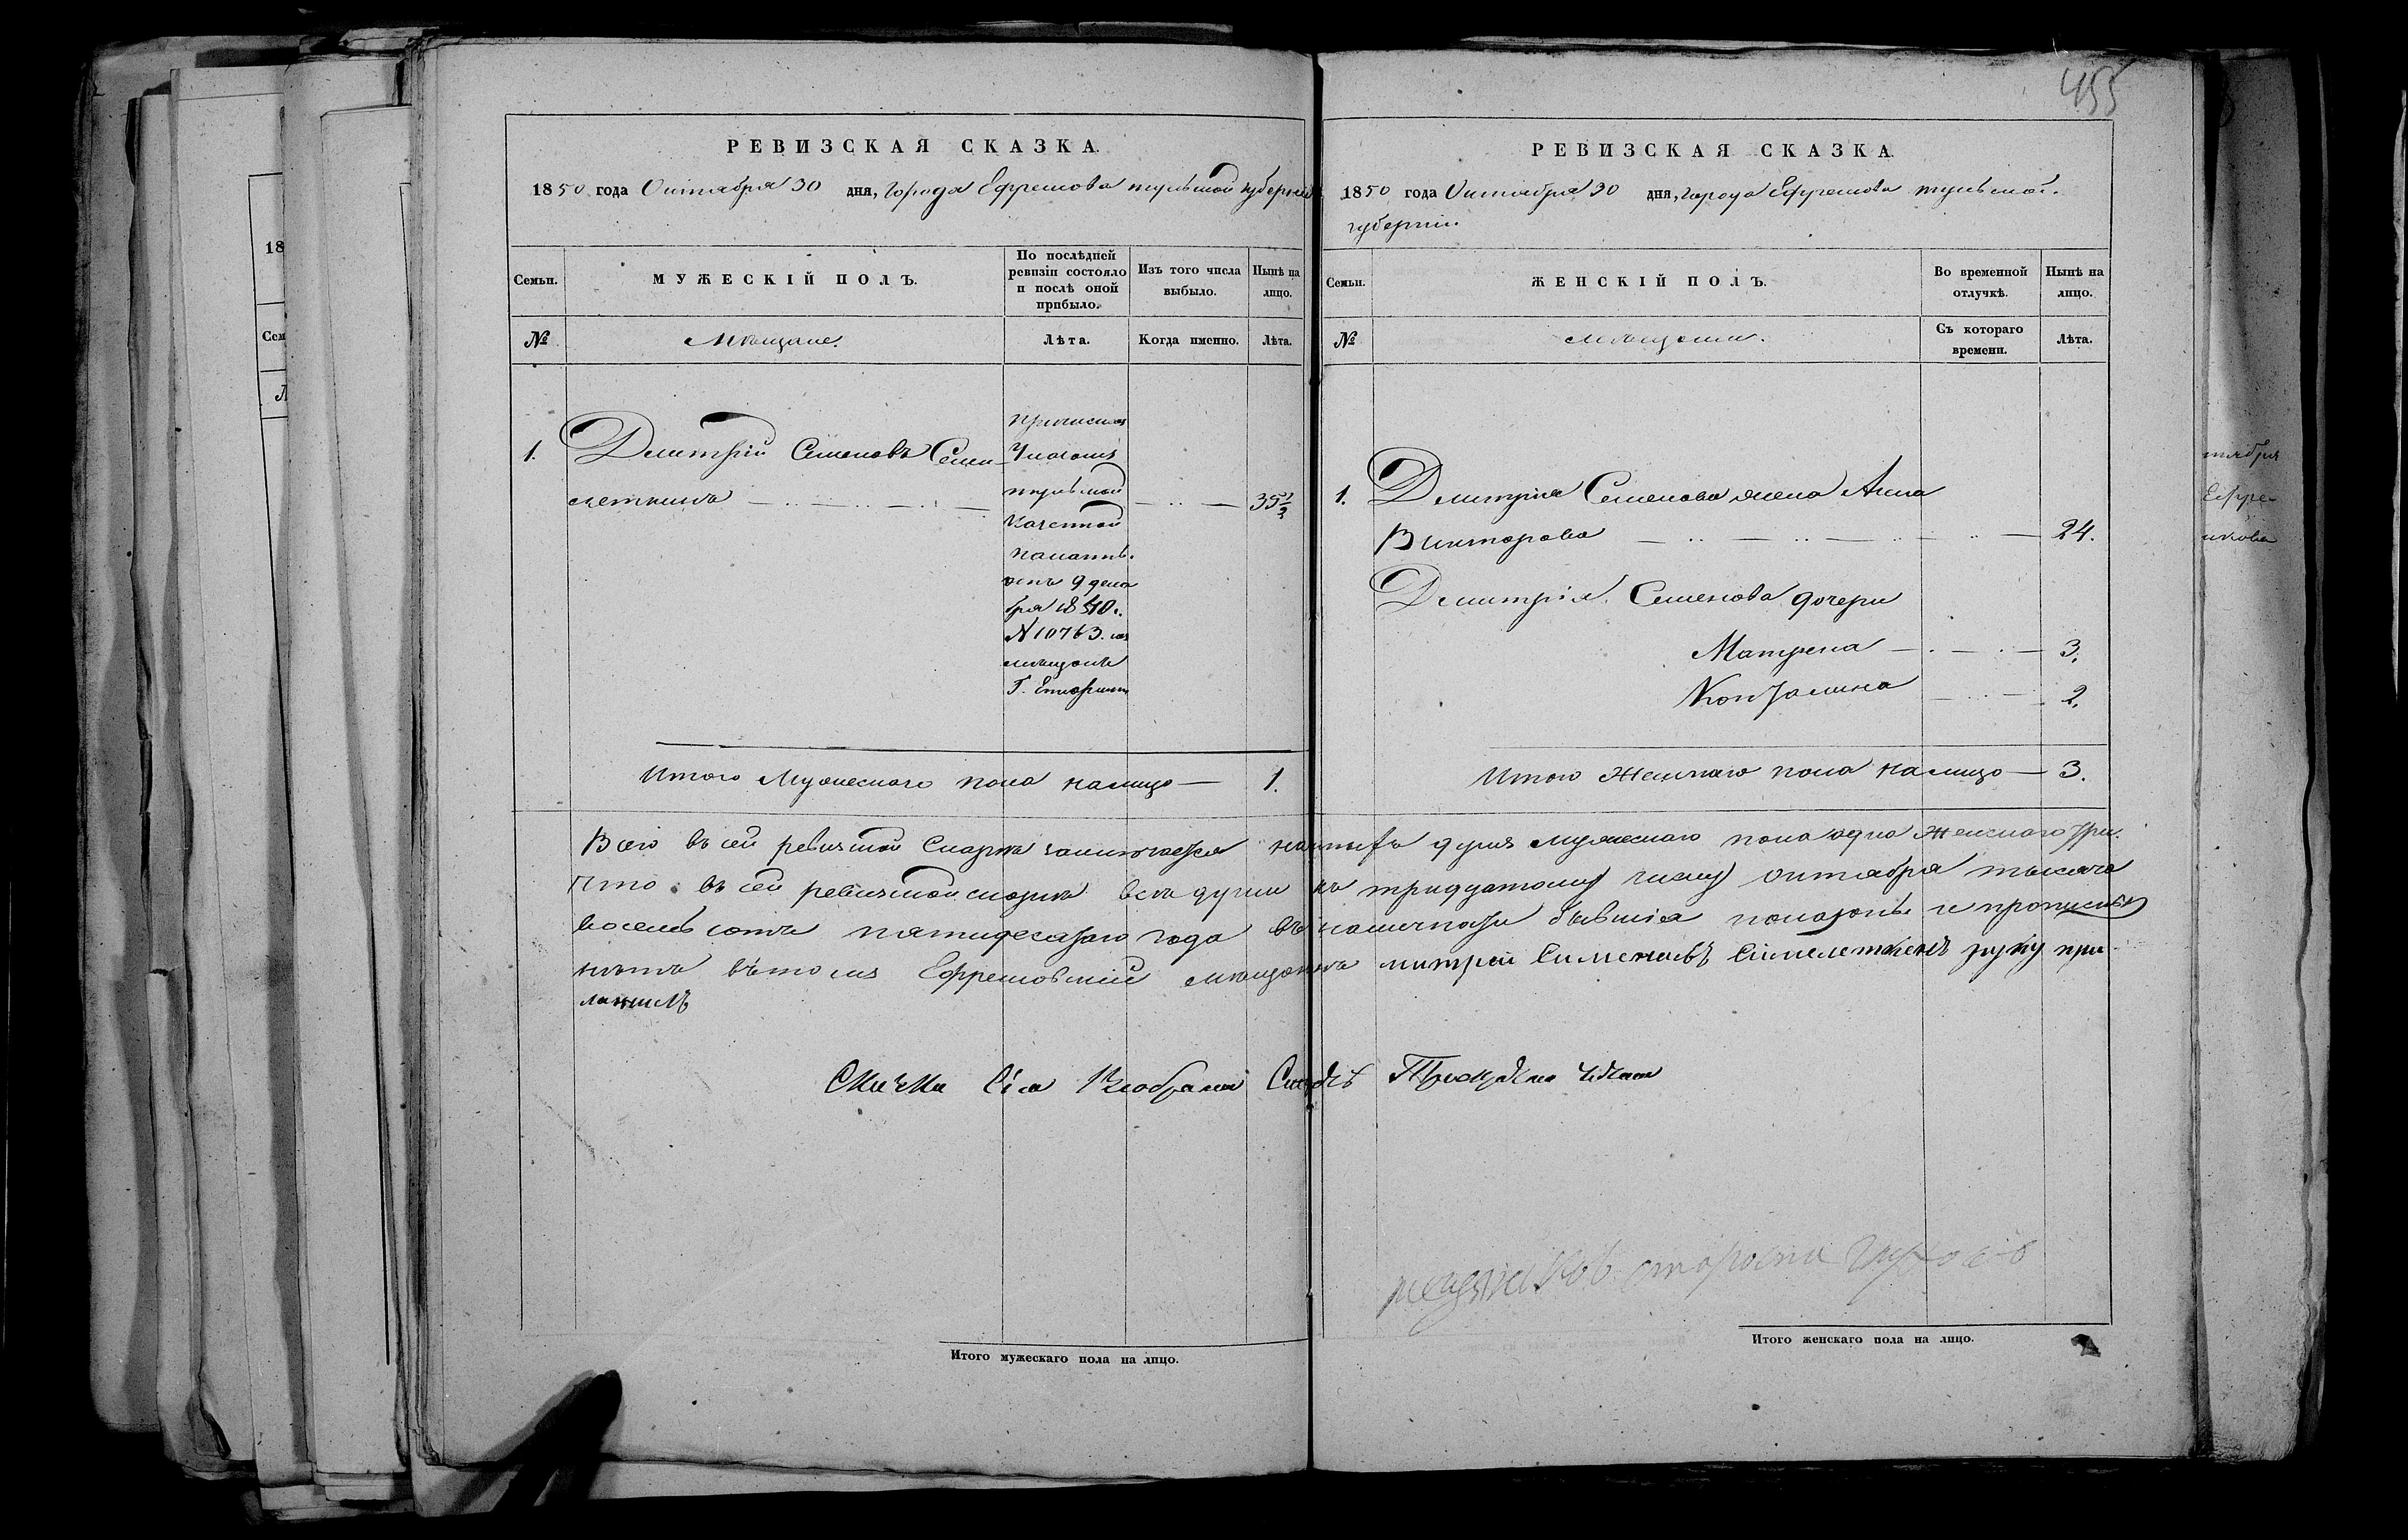 455
РЕВИЗСКАЯ СКАЗКА.
1850 года Октября 30 дня, города Ефремова тульской губерніи
Семьи.
МУЖЕСКІЙ ПОЛЪ.
По послѣдней ревизіи состояло и послѣ оной прибыло.
Изъ того числа выбыло.
Нынѣ на лицо.
№
Мѣщане.
Лѣта.
Когда именно.
Лѣта.
1.
Дмитрій Семеновъ Семи-
леткинъ
35 1/2
причислен
Указомъ
тульской
Казенной
палаты.
отъ 9 дека
бря 1840.
N 10763. из
мещанъ
РЕВИЗСКАЯ СКАЗКА.
1850 года Октября 30 дня, города Ефремова тульской
губерніи.
Семьи.
ЖЕНСКІЙ ПОЛЪ.
Во временной отлучкѣ.
Нынѣ на лицо.
№
мѣщанки.
Съ котораго времени.
Лѣта.
1. Дмитрія Семенова жена Анна
Викторова 24.
Дмитрія Семенова дочери
Матрена 3.
2.
Итого Мужескаго пола налицо 1.
Итого Женскаго пола налицо 3.
Всего въ сей ревизской Сказкѣ заключается наличныхъ душъ мужескаго пола одна Женскаго три.
Что въ сей ревизской сказкѣ всѣ души къ тридцатому числу октября тысяча
восемьсотъ пятидесятаго года въ наличности бывшія показоны и прописных
нѣтъ вътомъ Ефремовскій мѣщанинъ митрей Сименовъ Симелеткенъ руку при
ложилъ
Сія
мещанскоъ староста
Итого мужескаго пола на лицо.
Итого женскаго пола на лицо.
18
Сем
тября
Ефре-